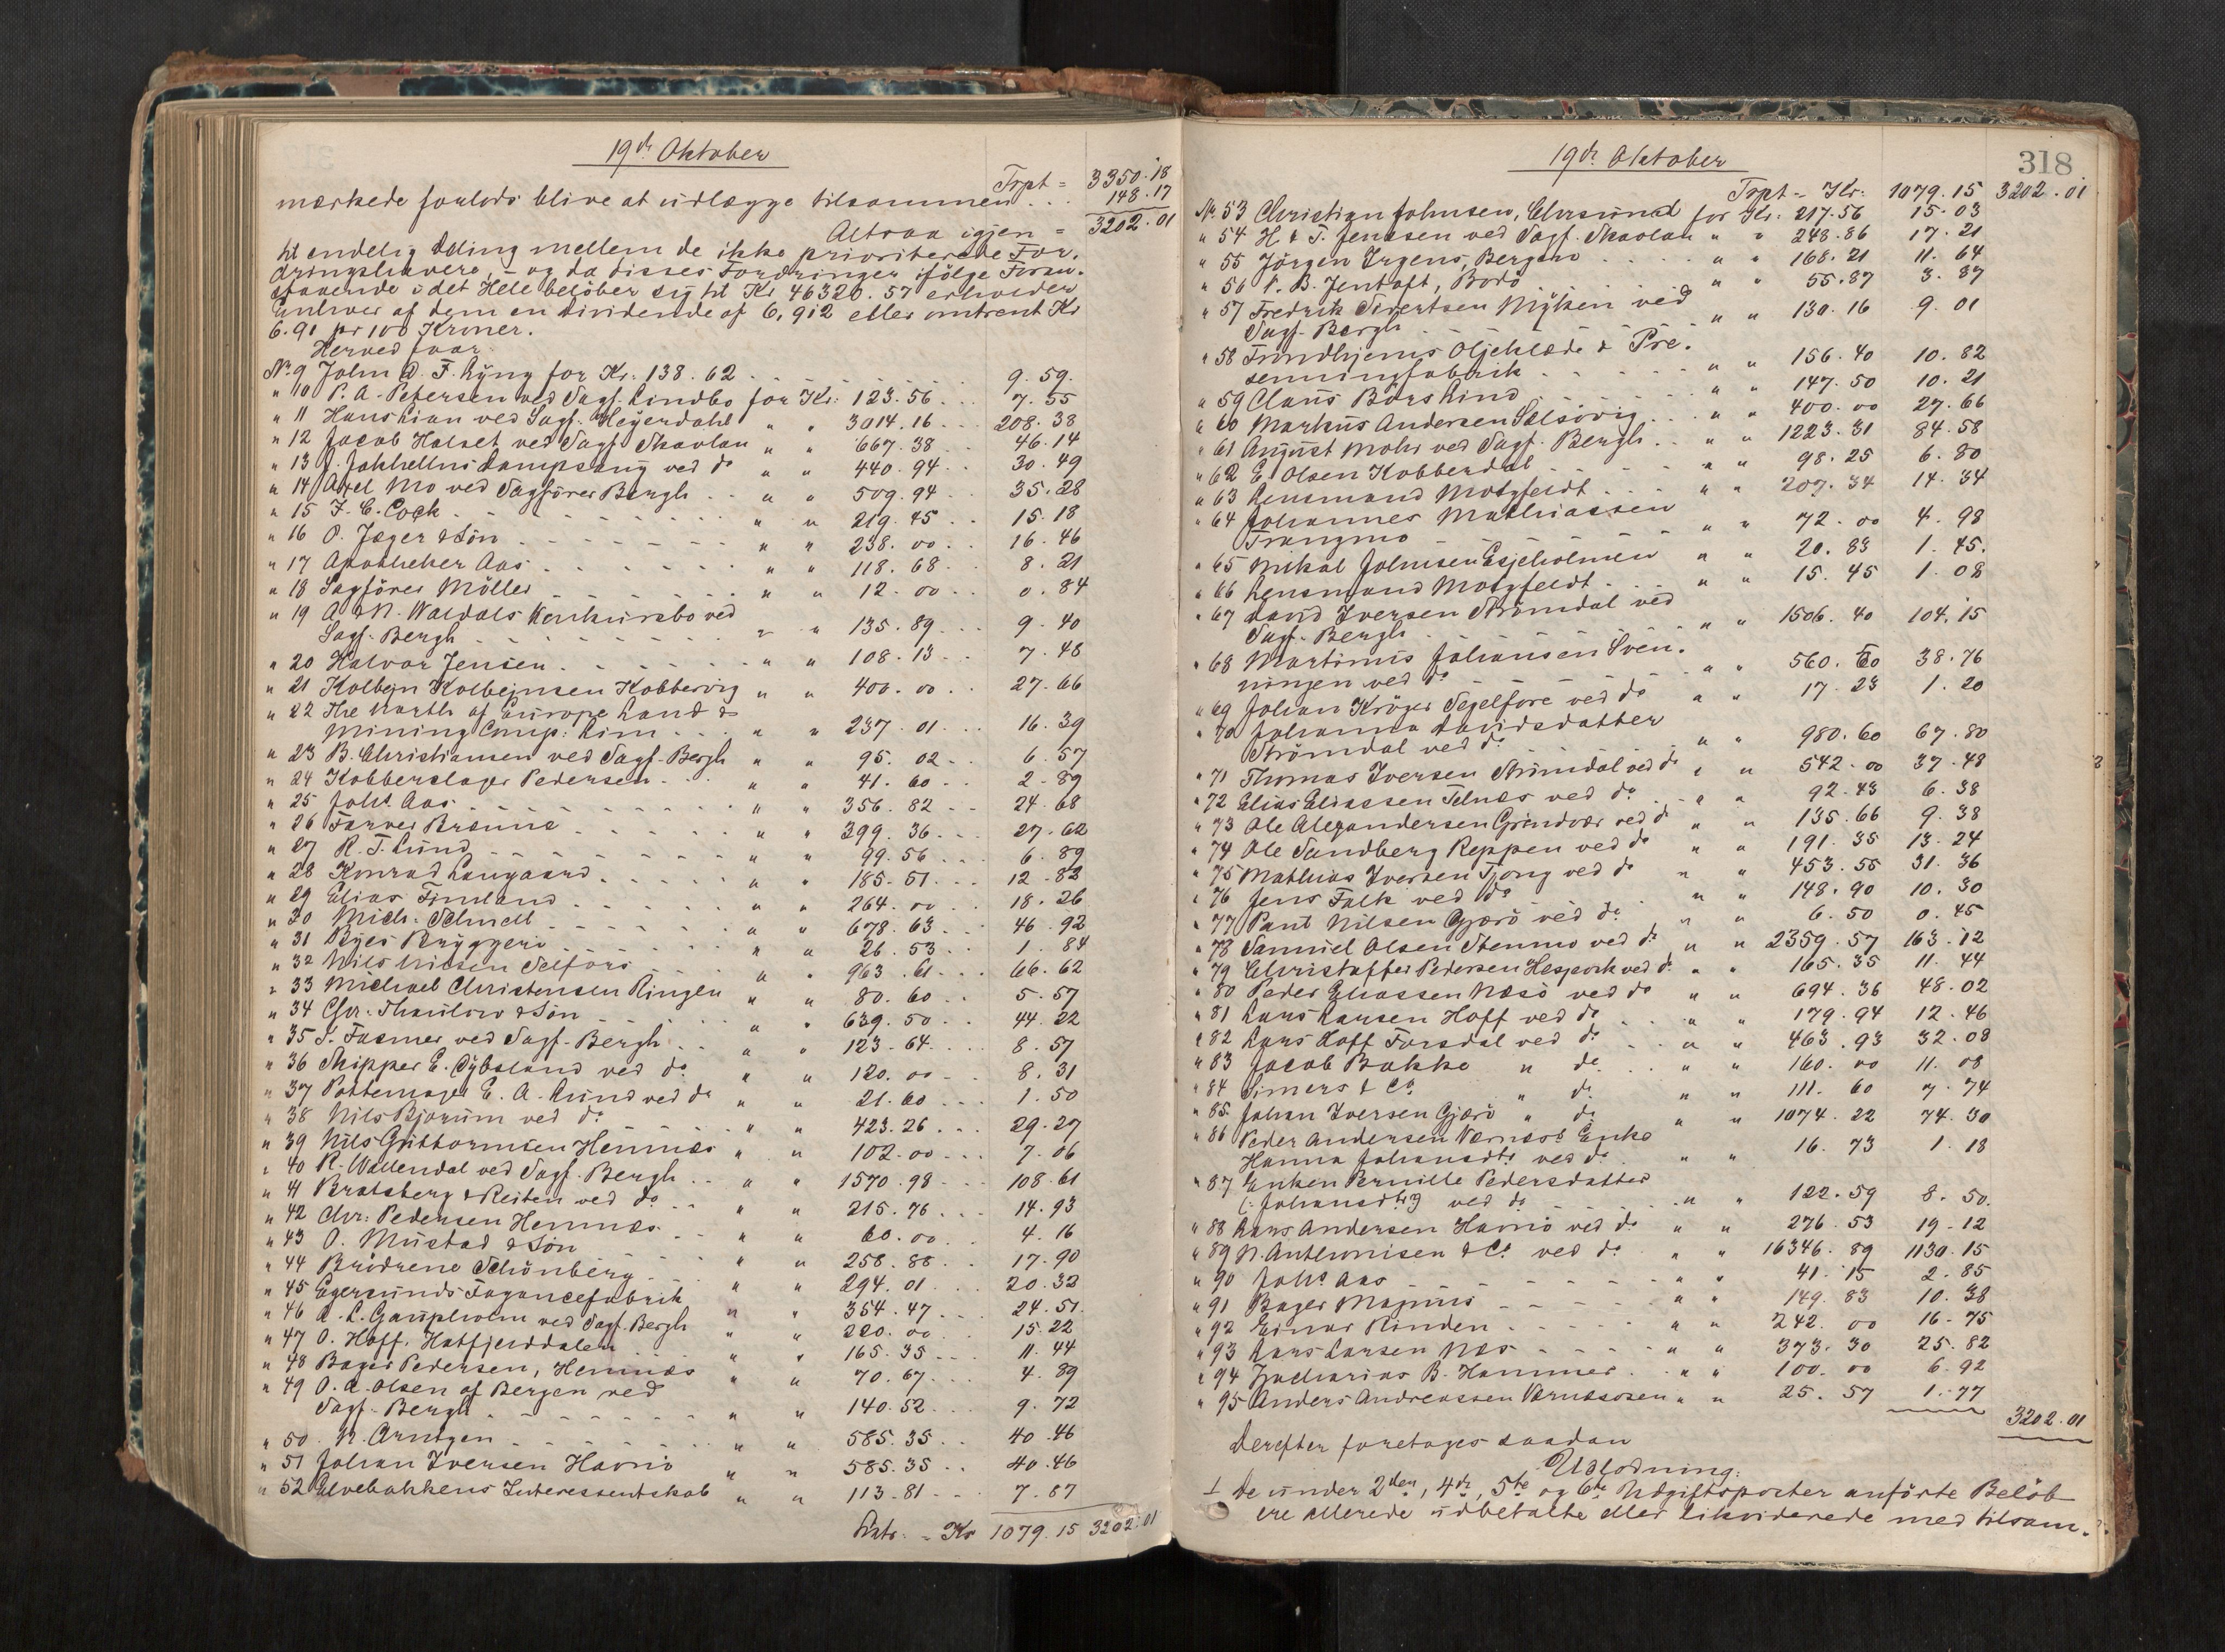 19de Oktober
Trpt = 3350.18
mærkede forlods blive at udlægge tilsammen . . . 148.17
Altsaa igjen = 3202.01
til endelig Deling mellem de ikke prioriterede For-
dringshavere, – og da disses Fordringer ifølge Foran-
staaende i det Hele beløber sig til Kr 46320.57 erholder
Enhver af dem en Dividende af 6,912 eller omtrent Kr
6.91 pr 100 Kroner.
Herved faar
No 9 John D. F. Lyng for Kr: 138.62 . . . 9.59.
" 10 P. A. Petersen ved Sagf. Lindbo for Kr: 123.56 . . . 7.55
" 11 Hans Lian ved Sagf. Heyerdahl " " 3014.16 . . . 208.38
" 12 Jacob Halset ved Sagf. Skavlan " " 667.38 . . 46.14
" 13 J. Jakhellns Dampsaug ved do " " 440.94 . . 30.49
" 14 Axel Mo ved Sagfører Bergh . . " " 509.94 . . 35.28
" 15 F. C. Cock . . . " " 219.45 . . 15.18
" 16 O. Jæger & Søn . . . " " 238.00 . . 16.46
" 17 Apotheker Aas . . . " " 118.68 . . 8.21
" 18 Sagfører Møller . . . " " 12.00 . . 0.84
" 19 A & N. Waldals Konkursbo ved
Sagf. Bergh . . . " " 135.89 . . . 9.40
" 20 Halvor Jensen . . . " " 108.13 . . 7.48
" 21 Kolbejn Kolbejnsen Kobbervig " " 400.00 . . 27.66
" 22 The North of Europe Land &
Mining Comp: Lim . . . " " 237.01 . . . 16.39
" 23 B. Christiansen ved Sagf. Bergh " " 95.02 . . 6.57
" 24 Kobberslager Pedersen . . . " " 41.60 . . 2.89
" 25 Johs Aas . . . " " 356.82 . . 24.68
" 26 Farver Brænne . . . " " 399.36 . . . 27.62
" 27 R. F. Lund . . . " " 99.56 . . . 6.89
" 28 Konrad Langaard . . . " " 185.51 . . . 12.83
" 29 Elias Finland . . . " " 264.00 . . 18.26
" 30 Mich: Schnell . . . " " 678.63 . . . 46.92
" 31 Byes Bryggeri . . . " " 26.53 . . 1.84
" 32 Nils Nilsen Selfors . . . " " 963.61 . . . 66.62
" 33 Michael Christensen Ringen " " 80.60 . . 5.57
" 34 Chr. Thaulow & Søn . . . " " 639.50 . . . 44.22
" 35 S. Fasmer ved Sagf. Bergh . . " " 123.64 . . . 8.57
" 36 Skipper E. Dybsland ved do " " 120.00 . . 8.31
" 37 Pottemager E. A. Lund ved do " " 21.60 . . . 1.50
" 38 Nils Bjorum ved do . . . " " 423.26 . . . 29.27
" 39 Nils Guttormsen Hemnæs " " 102.00 . . . 7.06
" 40 R. Wallendal ved Sagf. Bergh . . " " 1570.98 . . . 108.61
" 41 Bratsberg & Reiten ved do . . " " 215.76 . . . 14.93
" 42 Chr: Pedersen Hemnæs . . " " 60.00 . . 4.16
" 43 O. Mustad & Søn . . . " " 258.88 . . 17.90
" 44 Brødrene Schönberg . . . " " 294.01 . . . 20.32
" 45 Egersunds Fayancefabrik " " 354.47 . . . 24.51
" 46 A. L. Gaupholm ved Sagf. Bergh " " 220.00 . . 15.22
" 47 O. Hoff, Hatfjelddalen . . " " 165.35 . . . 11.44
" 48 Bager Pedersen, Hemnæs " " 70.67 . . . 4.89
" 49 O. A. Olsen af Bergen ved
Sagf. Bergh . . . " " 140.52 . . . 9.72
" 50 N. Arntzen . . . " " 585.35 . . 40.46
" 51 Johan Iversen Havnø " " 585.35 . . 40.46
" 52 Elvebakkens Interessentskab " " 113.81 . . . 7.87
Latr: = Kr 1079.15 3202.01
318
19de Oktober
Trpt = Kr: 1079.15 3202.01
No 53 Christian Johnsen, Chrsund for Kr: 217.56 15.03
" 54 H. & F. Jenssen ved Sagf. Skavlan " " 248.86 17.21
" 55 Jørgen Irgens, Bergen . . . " " 168.21 11.64
" 56 P. B. Jentoft, Bodø . . . " " 55.87 3.87
" 57 Fredrik Sivertsen Myken ved
Sagf. Bergh . . . " " 130.16 9.01
" 58 Trondhjems Oljeklæde & Pre-
senningfabrik . . . " " 156.40 10.82
" 59 Claus Børs Lind . . . " " 147.50 10.21
" 60 Markus Andersen Selsøvig . . . " " 400.00 27.66
" 61 August Mohr ved Sagf. Bergh . . " " 1223.31 84.58
" 62 E. Olsen Kobberdal . . . " " 98.25 6.80
" 63 Lensmand Motzfeldt . . . " " 207.34 14.34
" 64 Johannes Mathiassen
Trangmo . . . " " 72.00 4.98
" 65 Mikal Johnsen Esjeholmen " " 20.83 1.45.
" 66 Lensmand Motzfeldt . . . " " 15.45 1.08
" 67 David Iversen Strømdal ved
Sagf. Bergh . . . " " 1506.40 104.15
" 68 Martinus Johansen Sven-
ningen ved do " " 560.60 38.76
" 69 Johan Krøger Segelfore ved do " " 17.23 1.20
" 70 Johanna Davidsdatter
Strømdal ved do . . . " " 980.60 67.80
" 71 Thomas Iversen Strømdal ved do " " 542.00 37.48
" 72 Elias Eliassen Selnæs ved do . . " " 92.43 6.38
" 73 Ole Alexandersen Grindvær ved do " " 135.66 9.38
" 74 Ole Sandberg Reppen ved do " " 191.35 13.24
" 75 Mathias Iversen Tjong ved do " " 453.55 31.36
" 76 Jens Falk ved do . . . " " 148.90 10.30
" 77 Paul Nilsen Gjærø ved do " " 6.50 0.45
" 78 Samuel Olsen Stenmo ved do " " 2359.57 163.12
" 79 Christoffer Pedersen ved do " " 165.35 11.44
" 80 Peder Eliassen Næsø ved do " " 694.36 48.02
" 81 Lars Larsen Hoff ved do . . . " " 179.94 12.46
" 82 Lars Hoff Forsdal ved do . . " " 463.93 32.08
" 83 Jacob Bakke " do . . " " 160.00 11.08
" 84 Simers & Co " do " " 111.60 7.74
" 85 Johan Iversen Gjærø " do " " 1074.22 74.30
" 86 Peder Andersen Værnæs's Enke
Hanna Johansdtr ved do " " 16.73 1.18
" 87 Enken Pernille Pedersdatter
(: Johansdtr :) ved do . . . " " 122.59 8.50.
" 88 Lars Andersen Havnø ved do " " 276.53 19.12
" 89 N. Anthonisen & Co ved do . " " 16346.89 1130.15
" 90 Johs Aas . . . " " 41.15 2.85
" 91 Bager Magnus . . . " " 149.83 10.38
" 92 Einar Rinden . . . " " 242.00 16.75
" 93 Lars Larsen Næs . . . " " 373.30 25.82
" 94 Zacharias B. Hammer . . " " 100.00 6.92
" 95 Anders Andreassen Værnæsosen " " 25.57 1.77
3202.01
Derefter foretages saadan
Udlodning:
1 De under 2den, 4de, 5te og 6te Udgiftsposter anførte Beløb
ere allerede udbetalte eller likviderede med tilsam-